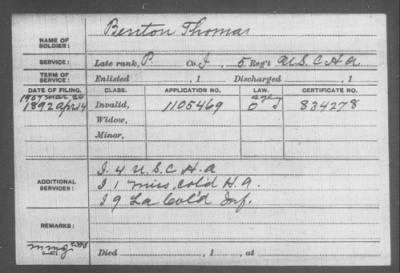 NAME OF SOLDIER: Benton Thomas
SERVICE: Late rank, P. Co. I, 5 Reg't U.S.C.H.A
TERM OF SERVICE: Enlisted , 1 Discharged , 1
DATE OF FILING. CLASS. APPLICATION NO. LAW. CERTIFICATE NO.
1907 Mar 20 age
1892 Apr 14 Invalid, 1105469 O d 834278
Widow,
Minor,
I. 4 U.S.C.H.A
ADDITIONAL SERVICES: I 1 Miss. Col'd H.A.
I 9 La Col'd Inf.
REMARKS:
Died , 1 , at